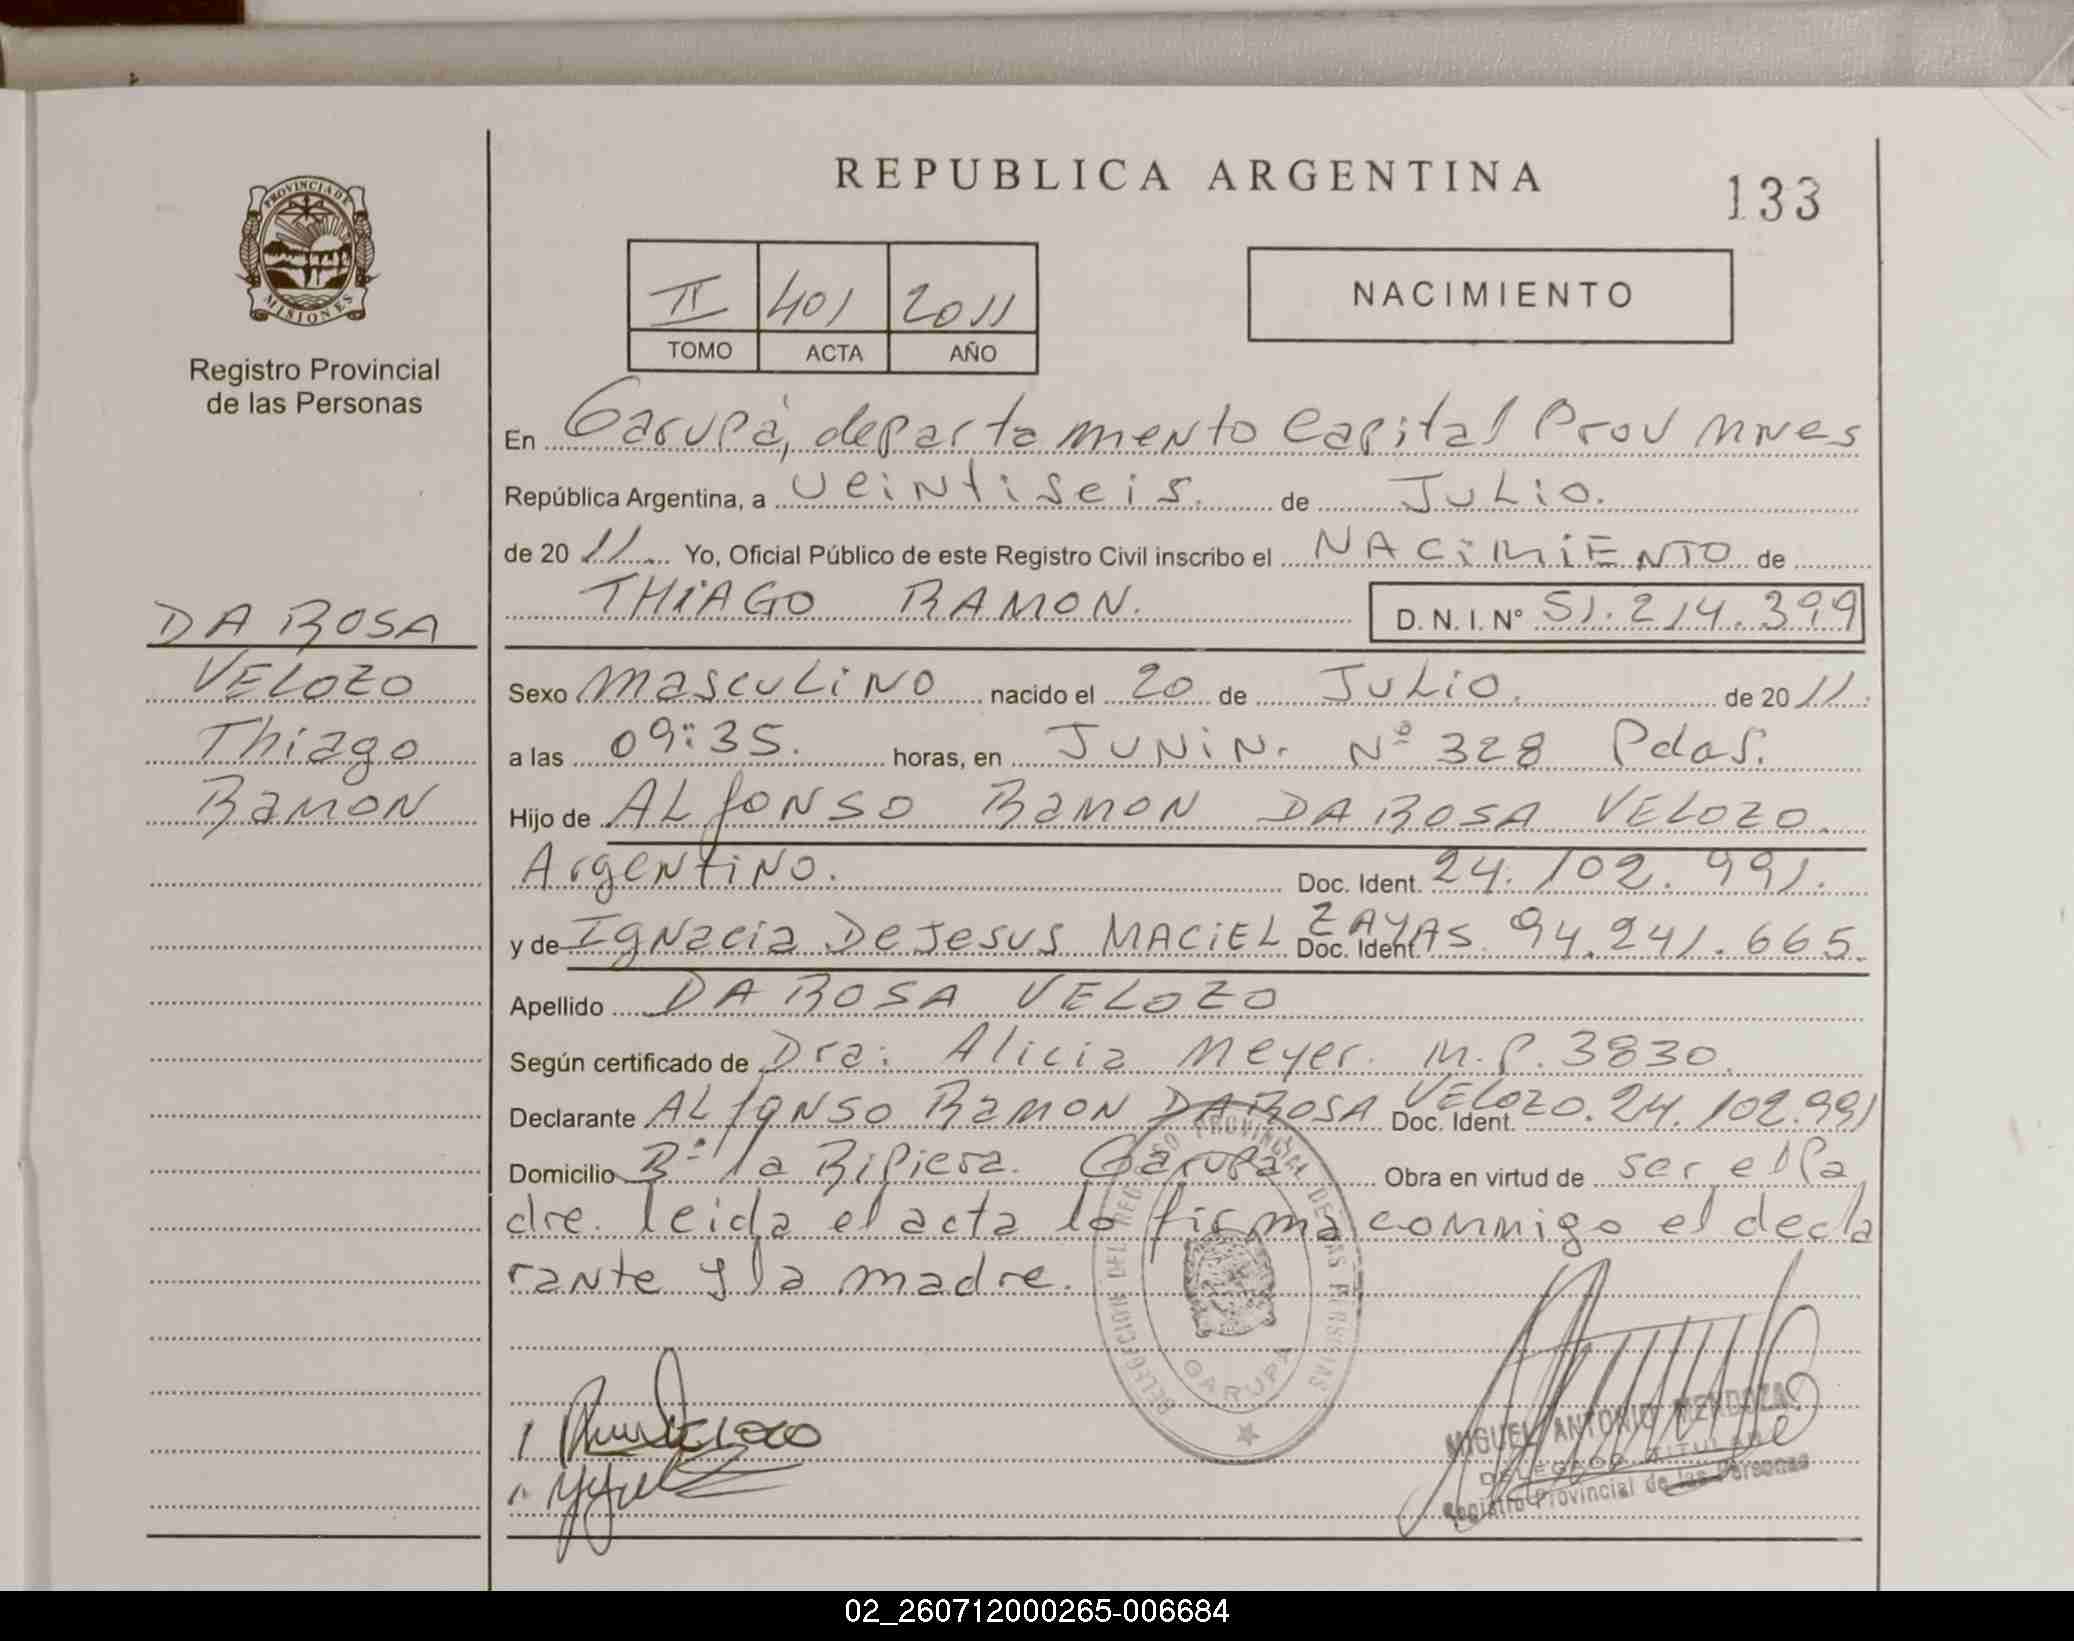 REPUBLICA ARGENTINA
133
PROVINCIA DE
MISIONES
Registro Provincial
de las Personas
II 401 2011
TOMO ACTA AÑO
NACIMIENTO
En Garupá, departamento Capital Prov Mnes
República Argentina, a veintiseis. de JULIO.
de 20 11 Yo, Oficial Público de este Registro Civil inscribo el NACIMIENTO de
THIAGO RAMON. D. N. I. Nº 51.214.399
DA ROSA
VELOZO
Thiago
RAMON
Sexo masculino nacido el 20 de JULIO. de 20 11.
a las 09:35. horas, en JUNIN. Nº 328 Pdas.
Hijo de ALfONSO RAMON DA ROSA VELOZO.
Argentino. Doc. Ident. 24.102.991.
y de Ignacia De Jesus MACIEL ZAYAS. Doc. Ident. 94.241.665.
Apellido DA ROSA VELOZO
Según certificado de Dra: Alicia Meyer. M.P. 3830.
Declarante ALfonso RAMON DA ROSA VELOZO. Doc. Ident. 24.102.991
Domicilio Bº la Ripiera. Garupa Obra en virtud de ser el Pa
dre. leida el acta lo firma conmigo el decla
rante y la madre.
DELEGACION DEL REGISTRO PROVINCIAL DE LAS PERSONAS
GARUPA
VELOZO
MIGUEL ANTONIO MENDOZA
DELEGADO TITULAR
Registro Provincial de las Personas
02_260712000265-006684